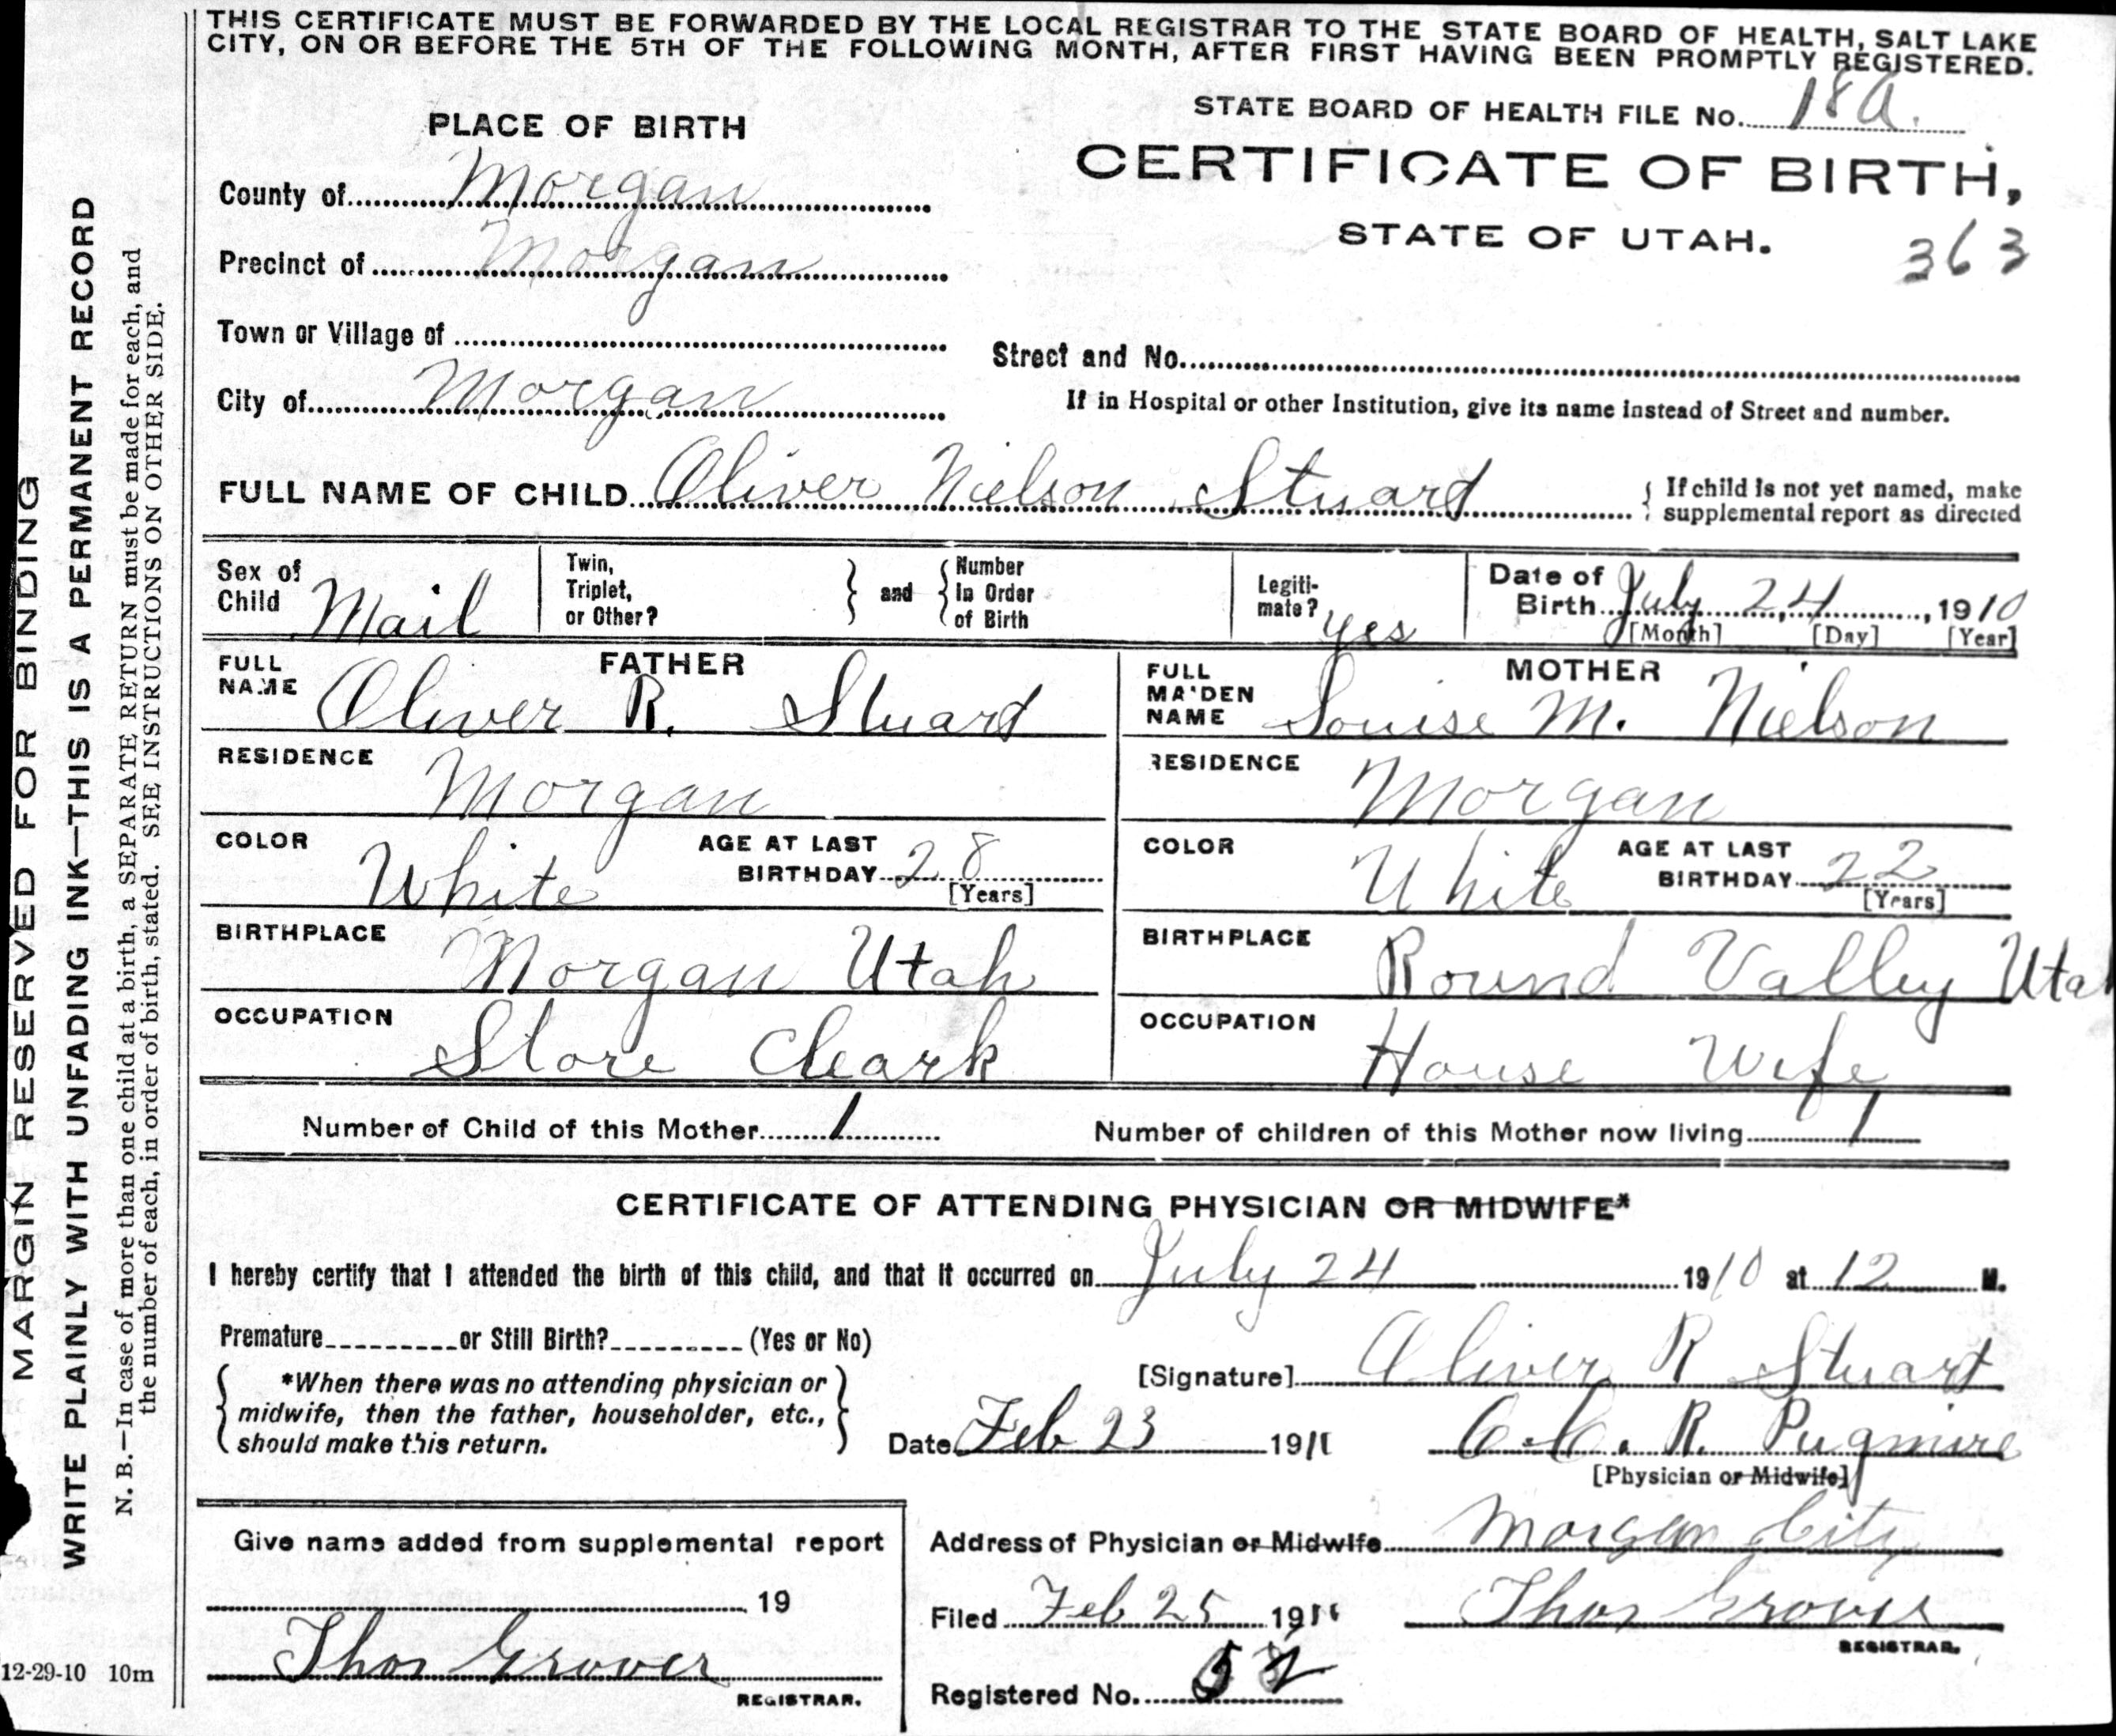 THIS CERTIFICATE MUST BE FORWARDED BY THE LOCAL REGISTRAR TO THE STATE BOARD OF HEALTH, SALT LAKE
CITY, ON OR BEFORE THE 5TH OF THE FOLLOWING MONTH, AFTER FIRST HAVING BEEN PROMPTLY REGISTERED.
STATE BOARD OF HEALTH FILE No. 18a.
PLACE OF BIRTH
CERTIFICATE OF BIRTH,
STATE OF UTAH.
363
County of Morgan
Precinct of Morgan
Town or Village of
Street and No.
City of Morgan
If in Hospital or other Institution, give its name instead of Street and number.
FULL NAME OF CHILD Oliver Nielson Stuart
{ If child is not yet named, make
supplemental report as directed
Sex of Child Mail
Twin, Triplet, or Other? } and { Number In Order of Birth
Legiti- mate? yes
Date of Birth July 24, 1910
[Month] [Day] [Year]
FATHER
FULL NAME Oliver R. Stuart
RESIDENCE Morgan
COLOR White AGE AT LAST BIRTHDAY 28
[Years]
BIRTHPLACE Morgan Utah
OCCUPATION Store Cleark
MOTHER
FULL MAIDEN NAME Louise M. Nielson
RESIDENCE Morgan
COLOR White AGE AT LAST BIRTHDAY 22
[Years]
BIRTHPLACE Round Valley Utah
OCCUPATION House Wife
Number of Child of this Mother 1 Number of children of this Mother now living 1
CERTIFICATE OF ATTENDING PHYSICIAN OR MIDWIFE*
I hereby certify that I attended the birth of this child, and that it occurred on July 24 1910 at 12 M.
Premature or Still Birth? (Yes or No)
{ *When there was no attending physician or
midwife, then the father, householder, etc.,
should make this return. }
[Signature] Oliver R Stuart
Date Feb 23 1911 C. R. Pugmire
[Physician or Midwife]
Address of Physician or Midwife Morgan City
Filed Feb 25 1911 Thos Grover
REGISTRAR.
Registered No.
Give name added from supplemental report
19
Thos Grover
REGISTRAR.
12-29-10 10m
MARGIN RESERVED FOR BINDING
WRITE PLAINLY WITH UNFADING INK—THIS IS A PERMANENT RECORD
N. B.—In case of more than one child at a birth, a SEPARATE RETURN must be made for each, and
the number of each, in order of birth, stated. SEE INSTRUCTIONS ON OTHER SIDE.